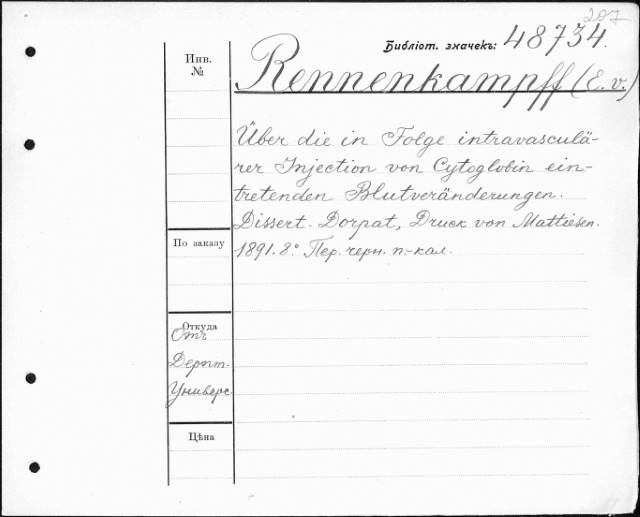 207
Библіот. значекъ: 48734.
Инв.
№
Rennenkampff (E. v.)
Über die in Folge intravasculä-
rer Injection von Cytoglobin ein-
tretenden Blutveränderungen.
Dissert. Dorpat, Druck von Mattiesen.
1891. 8.° Пер. черн. п.-кал.
По заказу
Откуда
Отъ
Дерпт.
Универс
Цѣна